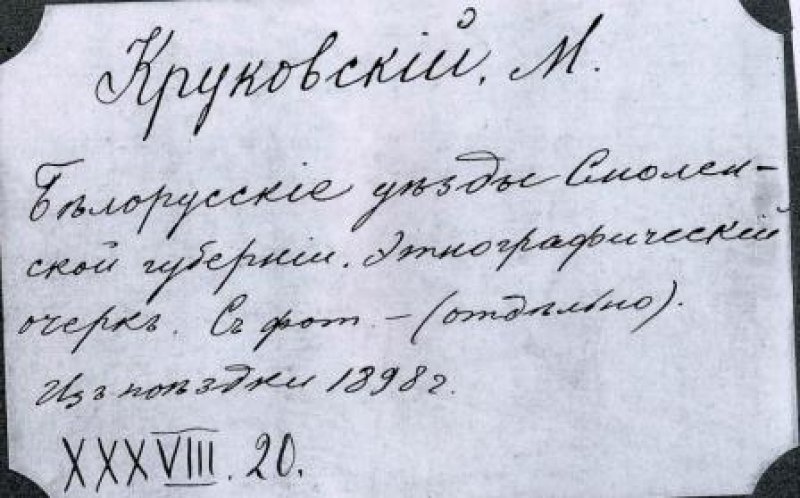 Круковскій, М.
Бѣлорусскіе уѣзды Смолен-
ской губерніи. Этнографическій
очеркъ. Съ фот. – (отдѣльно).
Изъ поѣздки 1898 г.
XXXVIII. 20.